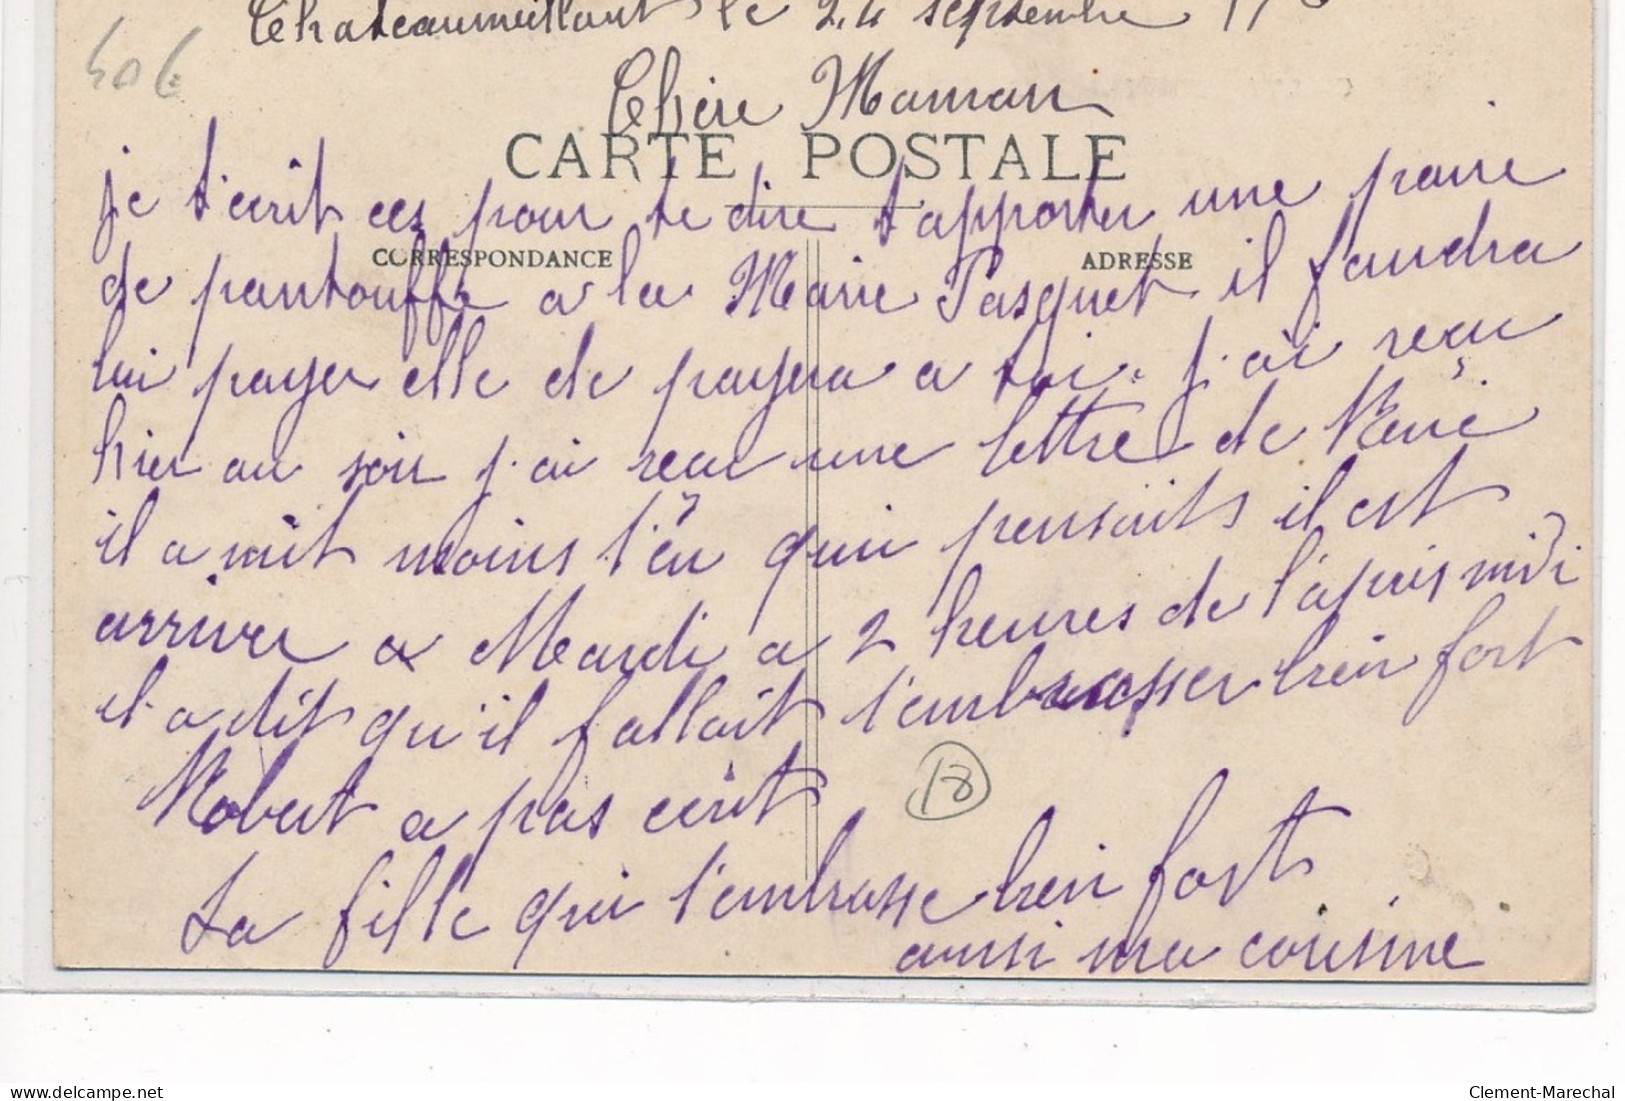 Chateaumeillant le 24 septembre
40€
Chère Maman
CARTE POSTALE
je t'ecrit ces pour te dire t'apporter une paire
CORRESPONDANCE
ADRESSE
de pantouffle a la Marie Pasquet il faudra
lui payer elle de payera a toi. j'ai reçu
hier au soir j'ai recu une lettre de René
il a mit moins l'en qui pensait il est
arriver a Mardi a 2 heures de l'apris midi
il a dit qu'il fallait t'embrasser bien fort
Robert a pas écrit
18
La fille qui t'embrasse bien fort
aussi ma cousine
Clement-Marechal